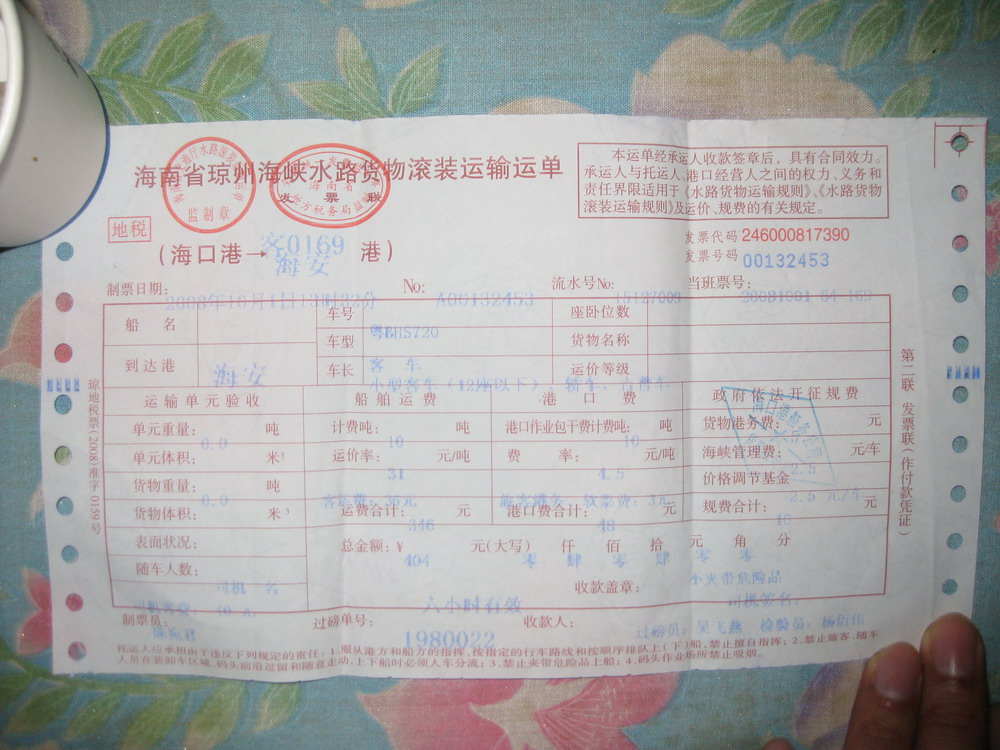 海南省琼州海峡水路货物滚装运输运单
监制章
海南省
发票联
地方税务局监制
本运单经承运人收款签章后，具有合同效力。
承运人与托运人、港口经营人之间的权力、义务和
责任界限适用于《水路货物运输规则》、《水路货物
滚装运输规则》及运价、规费的有关规定。
地税
客0169
（海口港→海安 港）
发票代码 246000817390
发票号码 00132453
制票日期： 2008年10月1日13时22分 No： A00132453 流水号No： 15127009 当班票号： 20081001 04 169
船名 车号 粤BHS720 座卧位数
车型 客 车 货物名称
到达港 海安 车长 小型客车（12座以下）、轿车、吉普车 运价等级
运输单元验收 船舶运费 港口费 政府依法开征规费
单元重量： 0.0 吨 计费吨： 10 吨 港口作业包干费计费吨： 10 吨 货物港务费： 元
单元体积： 米³ 运价率： 31 元/吨 费率： 4.5 元/吨 海峡管理费： 2.5 元/车
货物重量： 0.0 吨 客运费：36元 旅客港务、软票费：3元 价格调节基金 2.5 元/车
货物体积： 米³ 运费合计： 346 元 港口费合计： 48 元 规费合计： 10 元
表面状况： 总金额：¥ 404 元(大写) 零仟肆佰零拾肆元零角零分
随车人数： 司机 名 收款盖章： 不夹带危险品
司机客费： 40 元 六小时有效 司机签名：
制票员： 过磅单号： 1980022 收款人： 过磅员：吴飞燕 检验员：杨佰伟
托运人应承担由于违反下列规定的责任：1.服从港方和船方的指挥，按指定的行车路线和按顺序排队上(下)船，禁止擅自指挥；2.禁止旅客、随车
人员在装卸车区域、码头前沿逗留和随意走动，上下船时必须人车分流；3.禁止夹带危险品上船；4.码头作业场所禁止吸烟。
第二联 发票联(作付款凭证)
琼地税票(2008)准字0159号